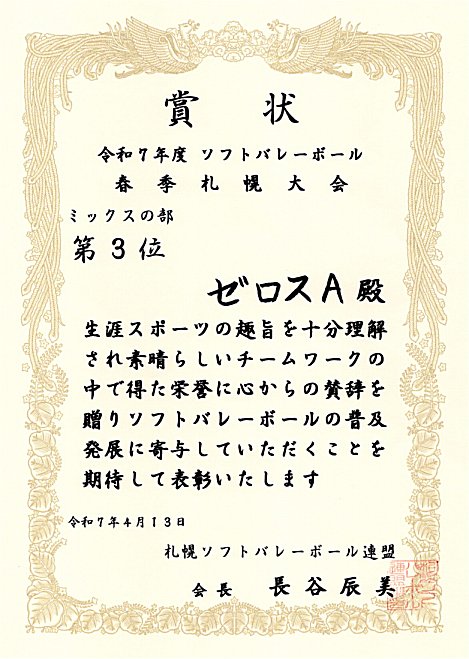 賞状
令和7年度 ソフトバレーボール
春季札幌大会
ミックスの部
第3位
ゼロスA殿
生涯スポーツの趣旨を十分理解
され素晴らしいチームワークの
中で得た栄誉に心からの賛辞を
贈りソフトバレーボールの普及
発展に寄与していただくことを
期待して表彰いたします
令和7年4月13日
札幌ソフトバレーボール連盟
会長 長谷辰美